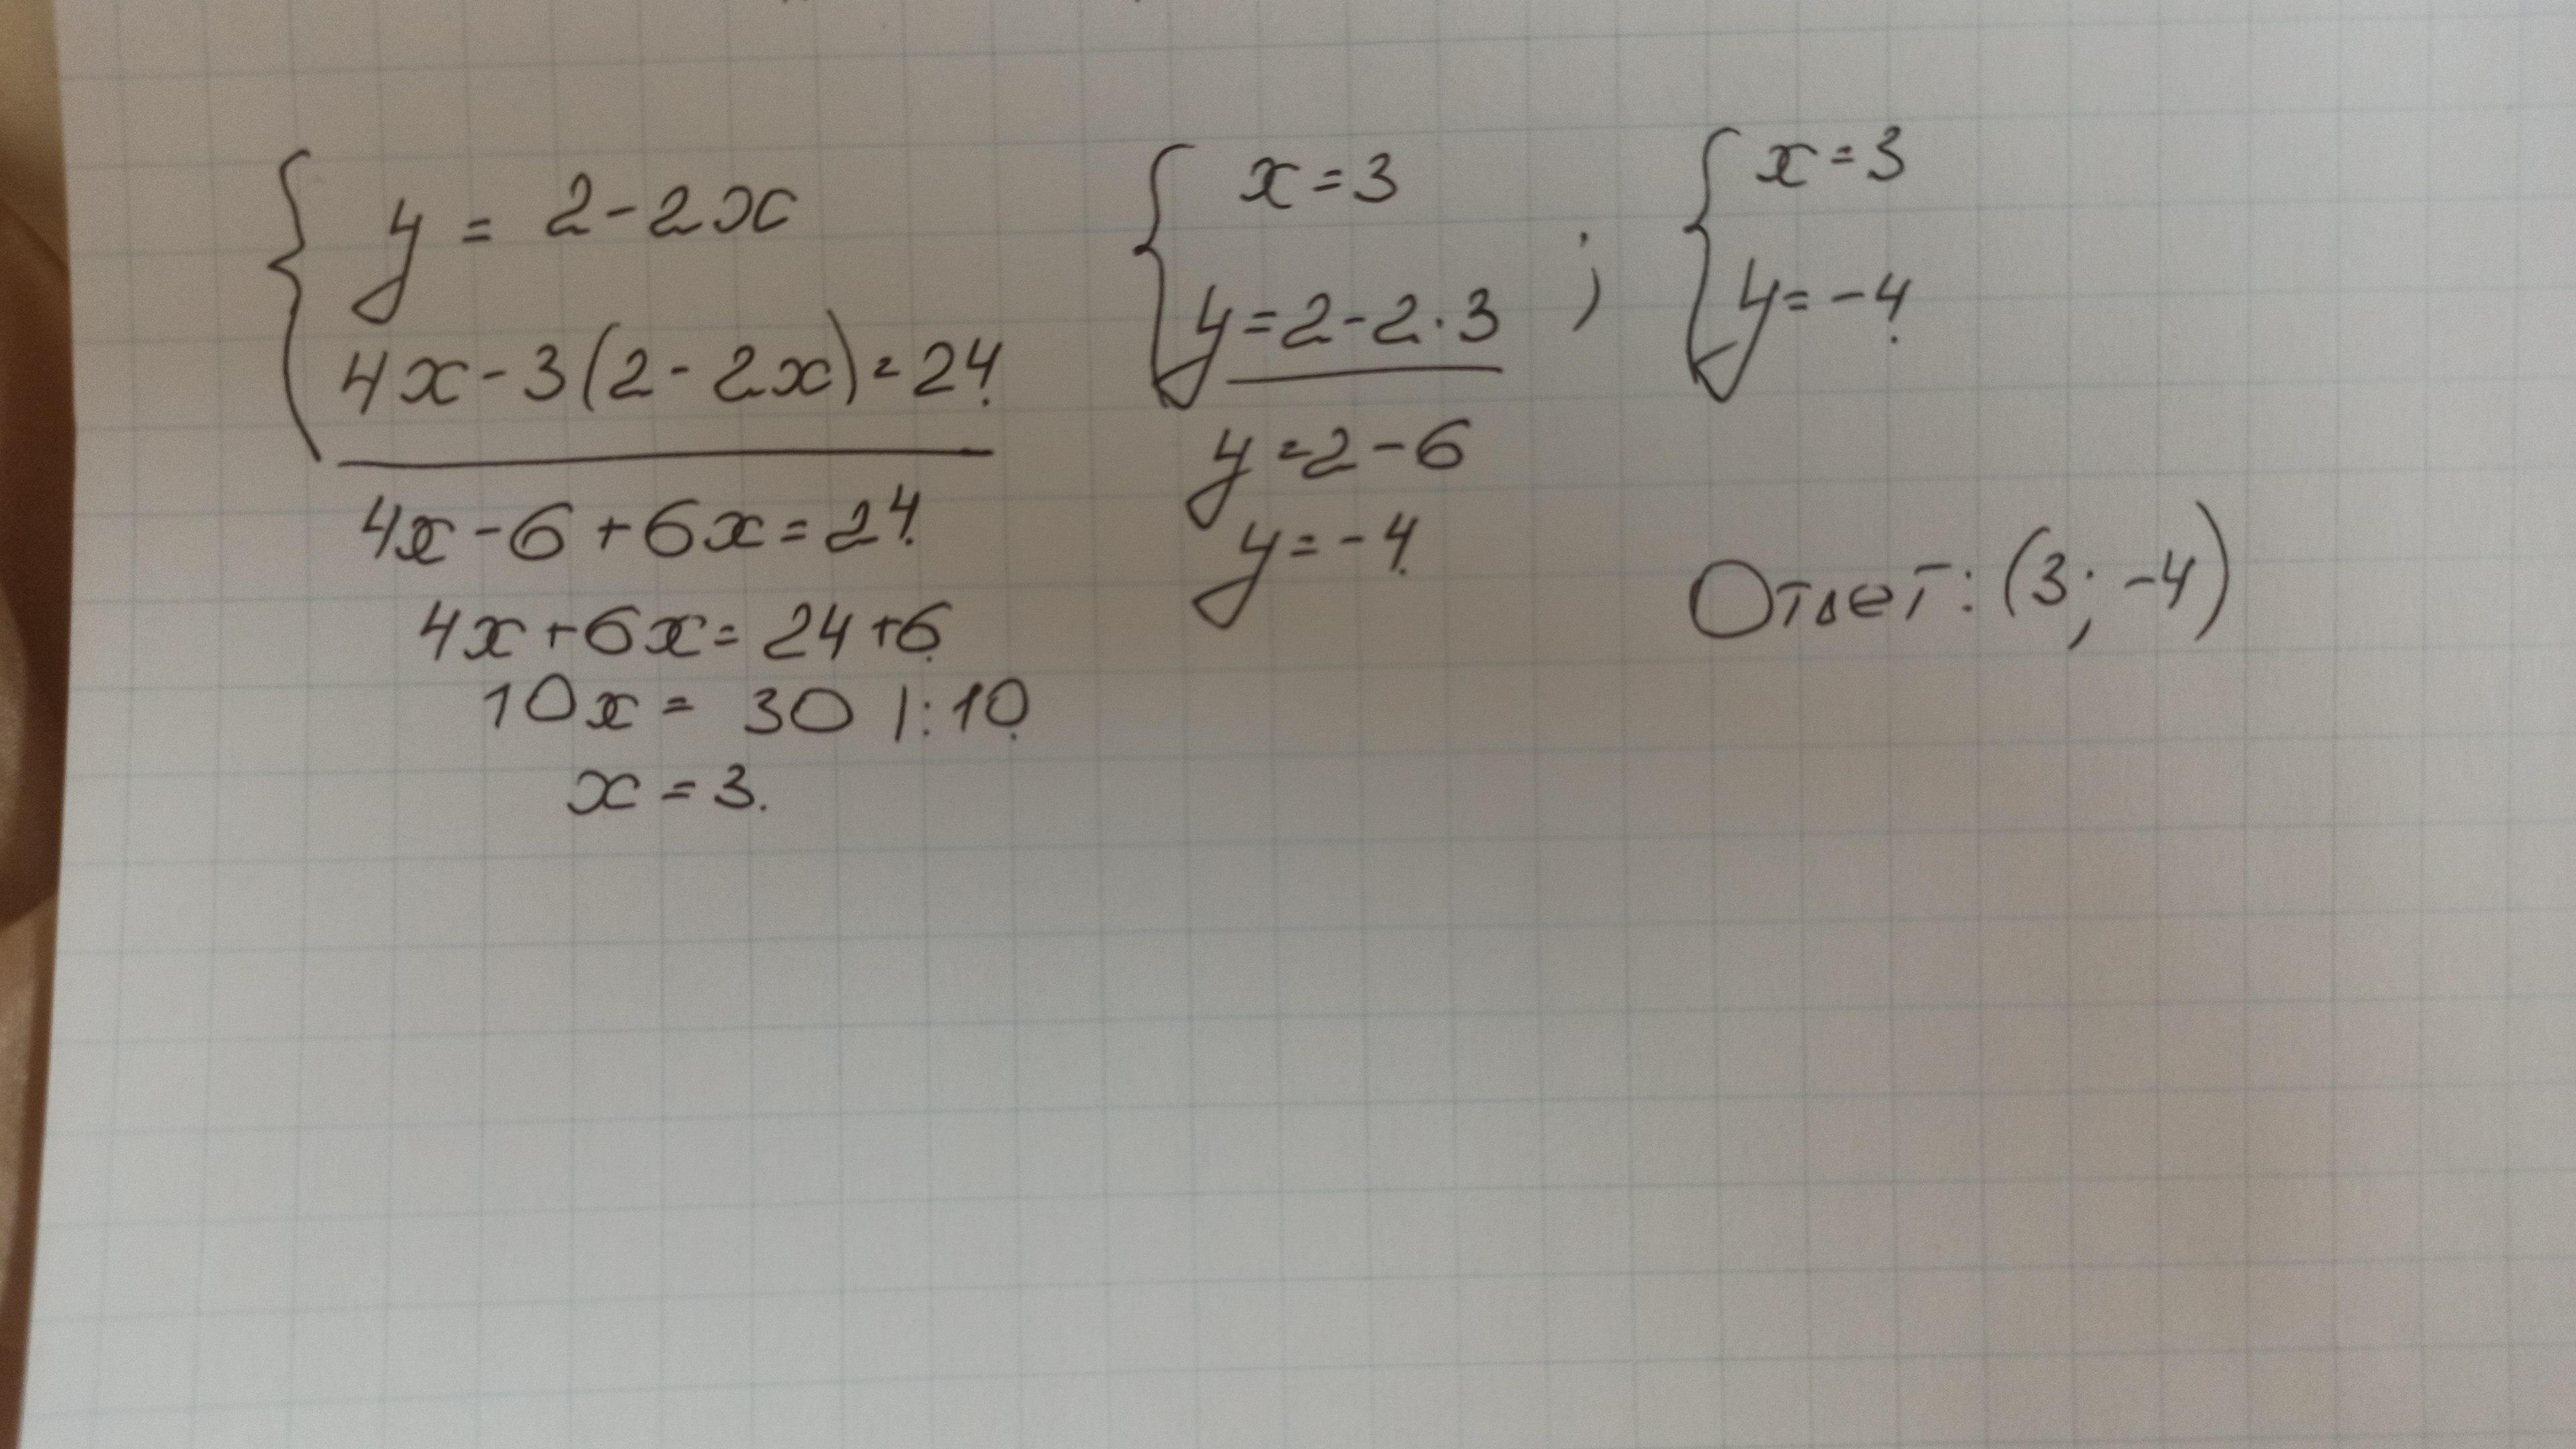 y = 2-2x
4x-3(2-2x)=24.
4x-6+6x=24.
4x+6x=24+6.
10x = 30 |:10.
x = 3.
x=3
y=2-2·3
;
y=2-6
y=-4.
x=3
y=-4.
Ответ: (3; -4)